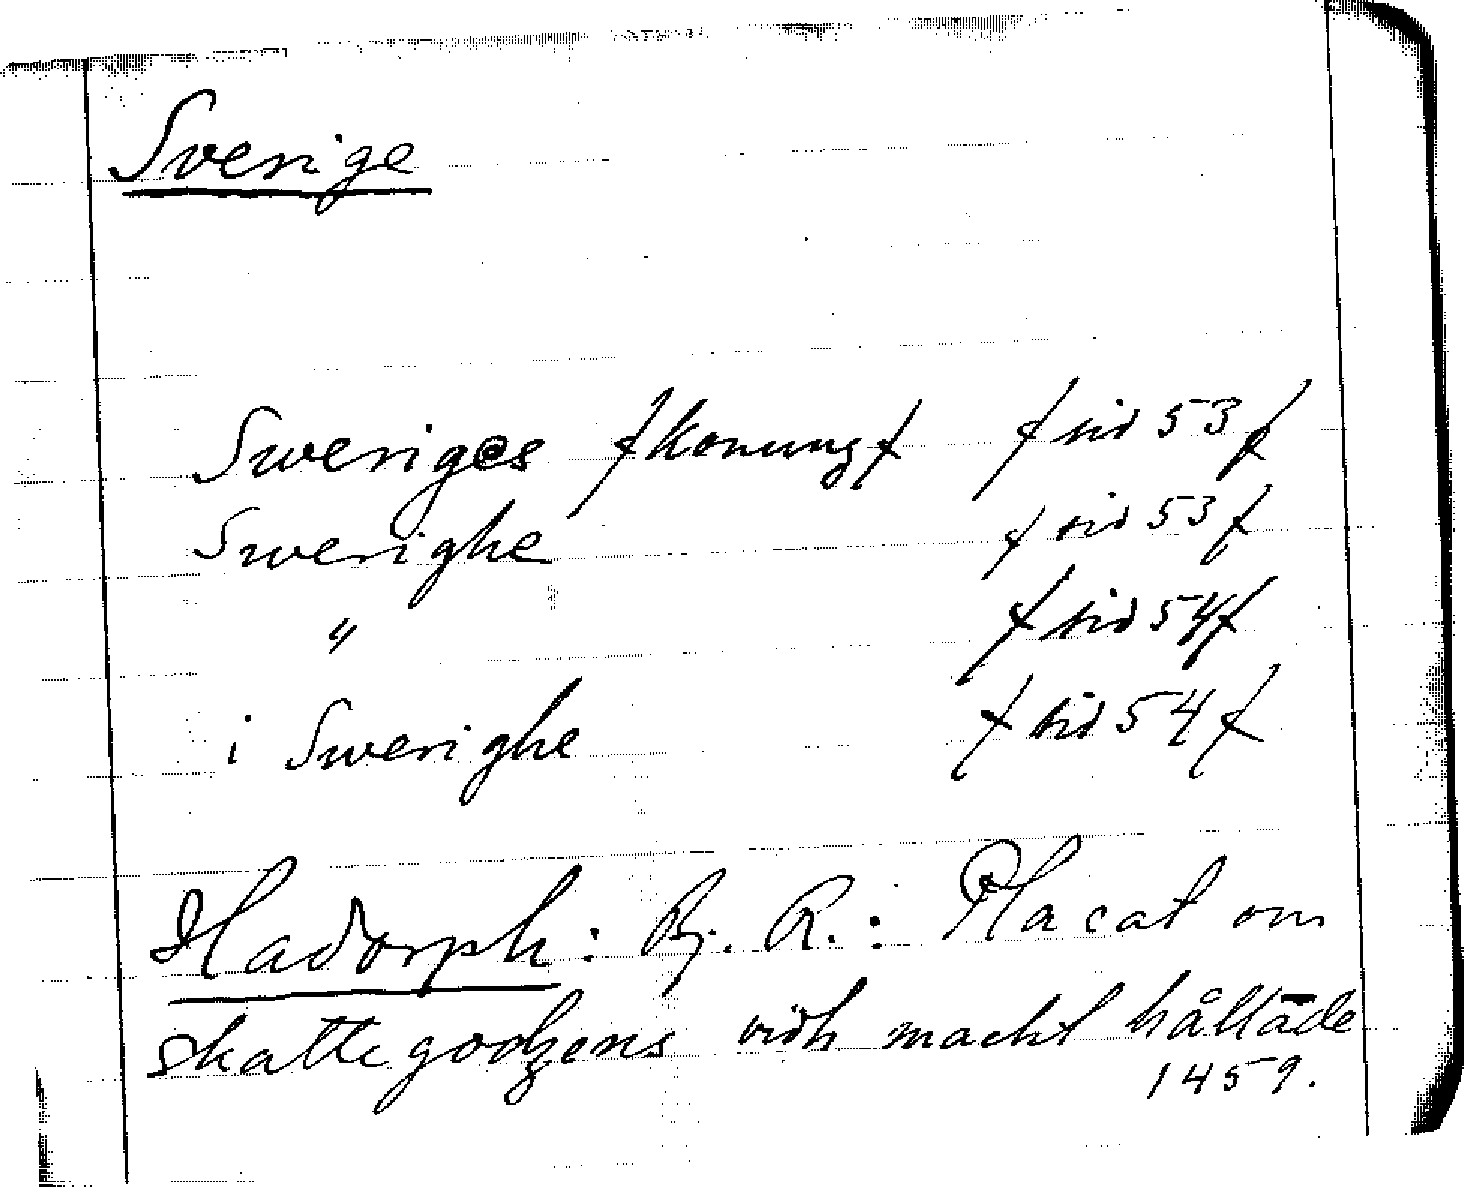 Sverige
Sweriges (konung) (sid 53)
Swerighe (sid 53)
" (sid 54)
i Swerighe (sid 54)
Hadorph: Bj. R.: Placat om
skattegodzens widh macht hållāde
1459.